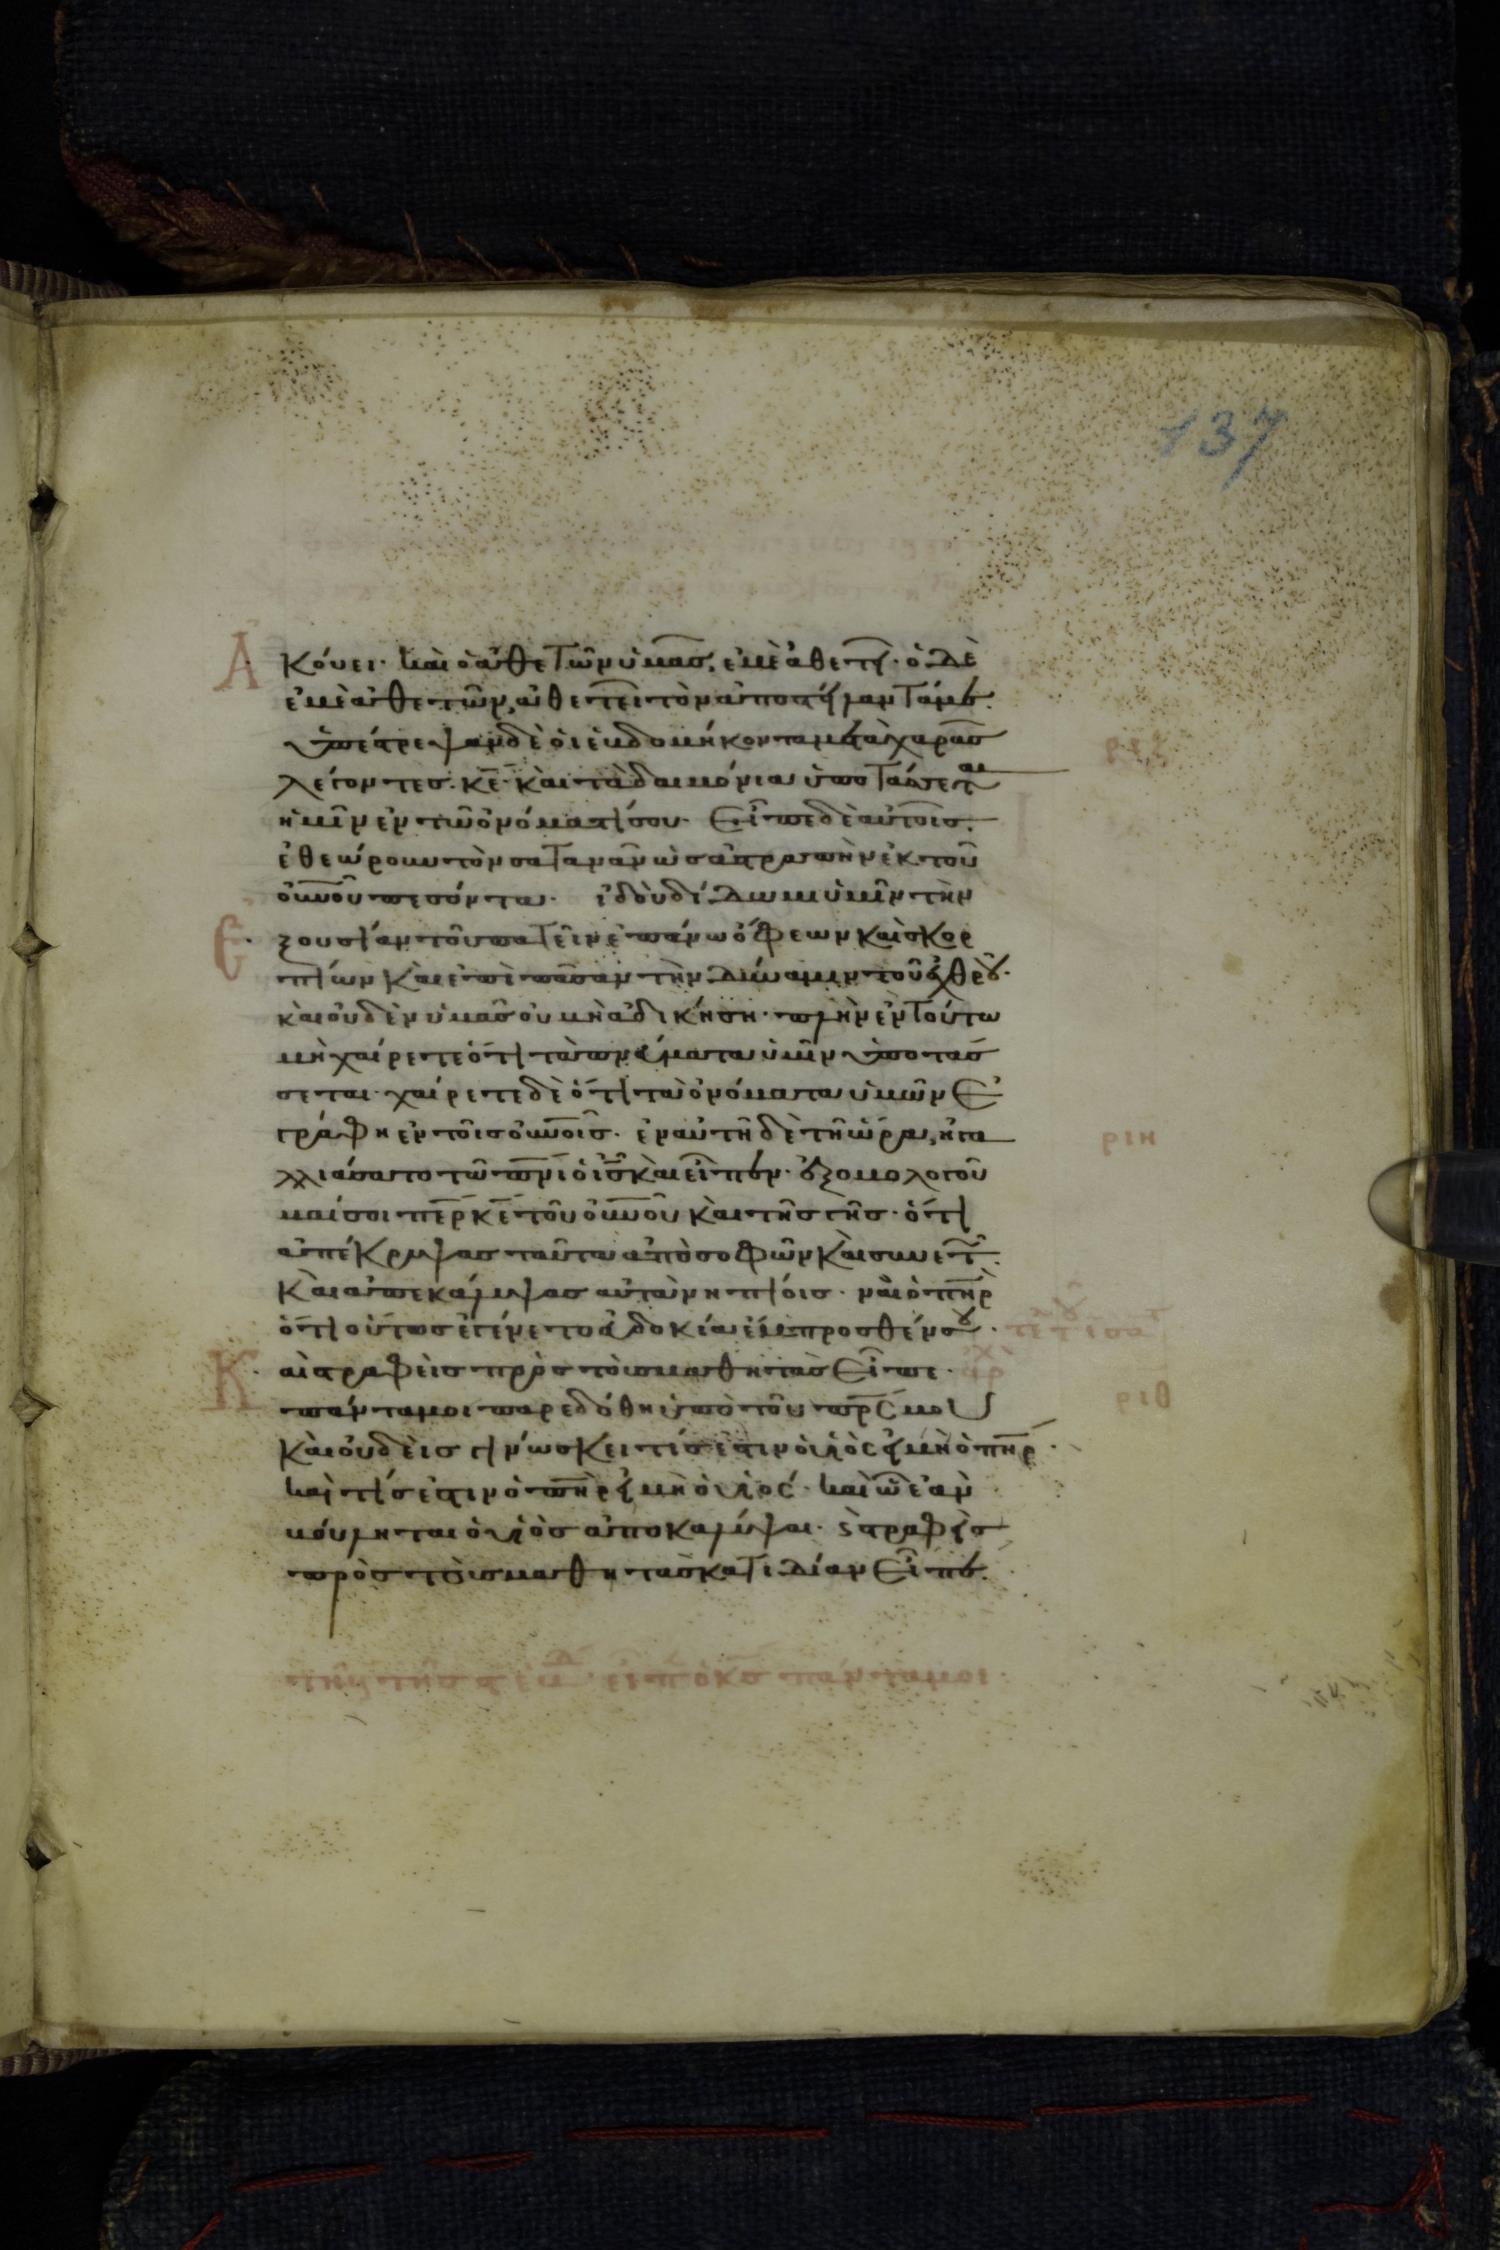 137
Ἀκούει· καὶ ὁ ἀθετῶν ὑμᾶς, ἐμὲ ἀθετεῖ· ὁ δὲ
ἐμὲ ἀθετῶν, ἀθετεῖ τὸν ἀποστείλαντά με.
ὑπέστρεψαν δὲ οἱ ἑβδομήκοντα μετὰ χαρᾶς
λέγοντες· κε̅ καὶ τὰ δαιμόνια ὑποτάσσεται
ἡμῖν ἐν τῶ ὀνόματί σου· Εἶπε δὲ αὐτοῖς.
ἐθεώρουν τὸν σατανᾶν ὡς ἀστραπὴν ἐκ τοῦ
οὐ̅νοῦ πεσόντα· ἰδοὺ δίδωμι ὑμῖν τὴν
Ἐξουσίαν τοῦ πατεῖν ἐπάνω ὄφεων καὶ σκορ
πίων καὶ ἐπὶ πᾶσαν τὴν δύναμιν τοῦ ἐχθροῦ·
καὶ οὐδὲν ὑμᾶς οὐ μὴ ἀδικήση· πλὴν ἐν τούτω
μὴ χαίρετε ὅτι τὰ πνεύματα ὑμῖν ὑποτάσ
σεται· χαίρετε δὲ ὅτι τὰ ὀνόματα ὑμῶν ἐ
γράφη ἐν τοῖς οὐ̅νοῖς· ἐν αὐτῆ δὲ τῆ ὥρα, ἠγα
λλιάσατο τῶ πν̅ι ὁ ις̅ καὶ εἶπεν· ἐξομολογοῦ
μαί σοι πε̅ρ κε̅ τοῦ οὐ̅νοῦ καὶ τῆς γῆς· ὅτι
ἀπέκρυψας ταῦτα ἀπὸ σοφῶν καὶ συνετῶν·
καὶ ἀπεκάλυψας αὐτὰ νηπίοις· ναὶ ὁ πη̅ρ
ὅτι οὕτως ἐγένετο εὐδοκία ἔμπροσθέν σου·
Καὶ στραφεὶς πρὸς τοὺς μαθητὰς εἶπε·
πάντα μοι παρεδόθη ὑπὸ τοῦ πρ̅ς μου
καὶ οὐδεὶς γινώσκει τίς ἐστιν ὁ υἱὸς εἰ μὴ ὁ πη̅ρ·
καὶ τίς ἐστιν ὁ πη̅ρ εἰ μὴ ὁ υἱός· καὶ ὧ ἐὰν
βούληται ὁ υἱὸς ἀποκαλύψαι· καὶ στραφεὶς
πρὸς τοὺς μαθητὰς κατιδίαν εἶπε.
ριη
ριθ